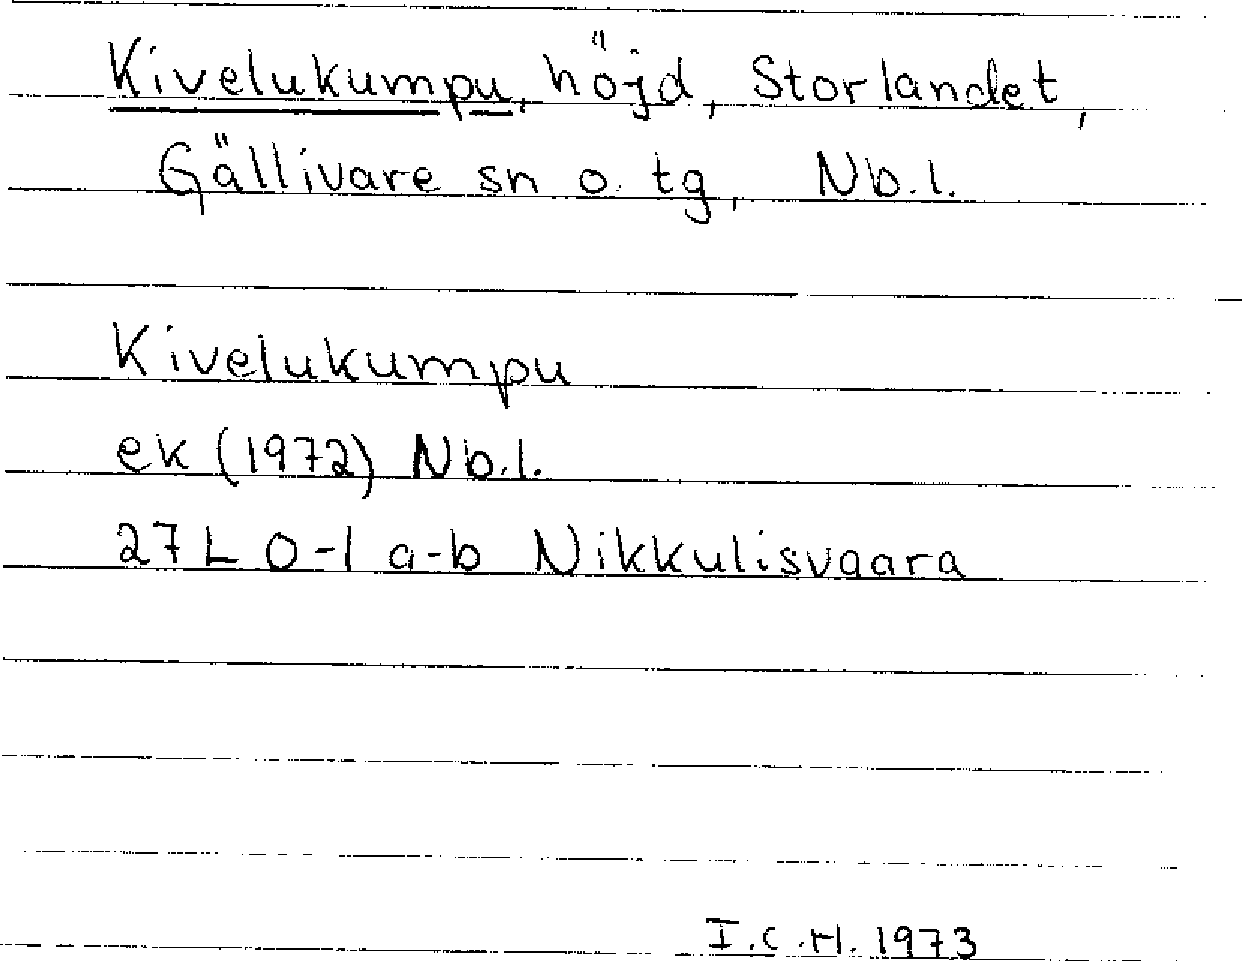 Kivelukumpu, höjd, Storlandet,
Gällivare sn o. tg, Nb.l.
Kivelukumpu
ek (1972) Nb.l.
27 L 0-1 a-b Nikkulisvaara
I.C.H. 1973